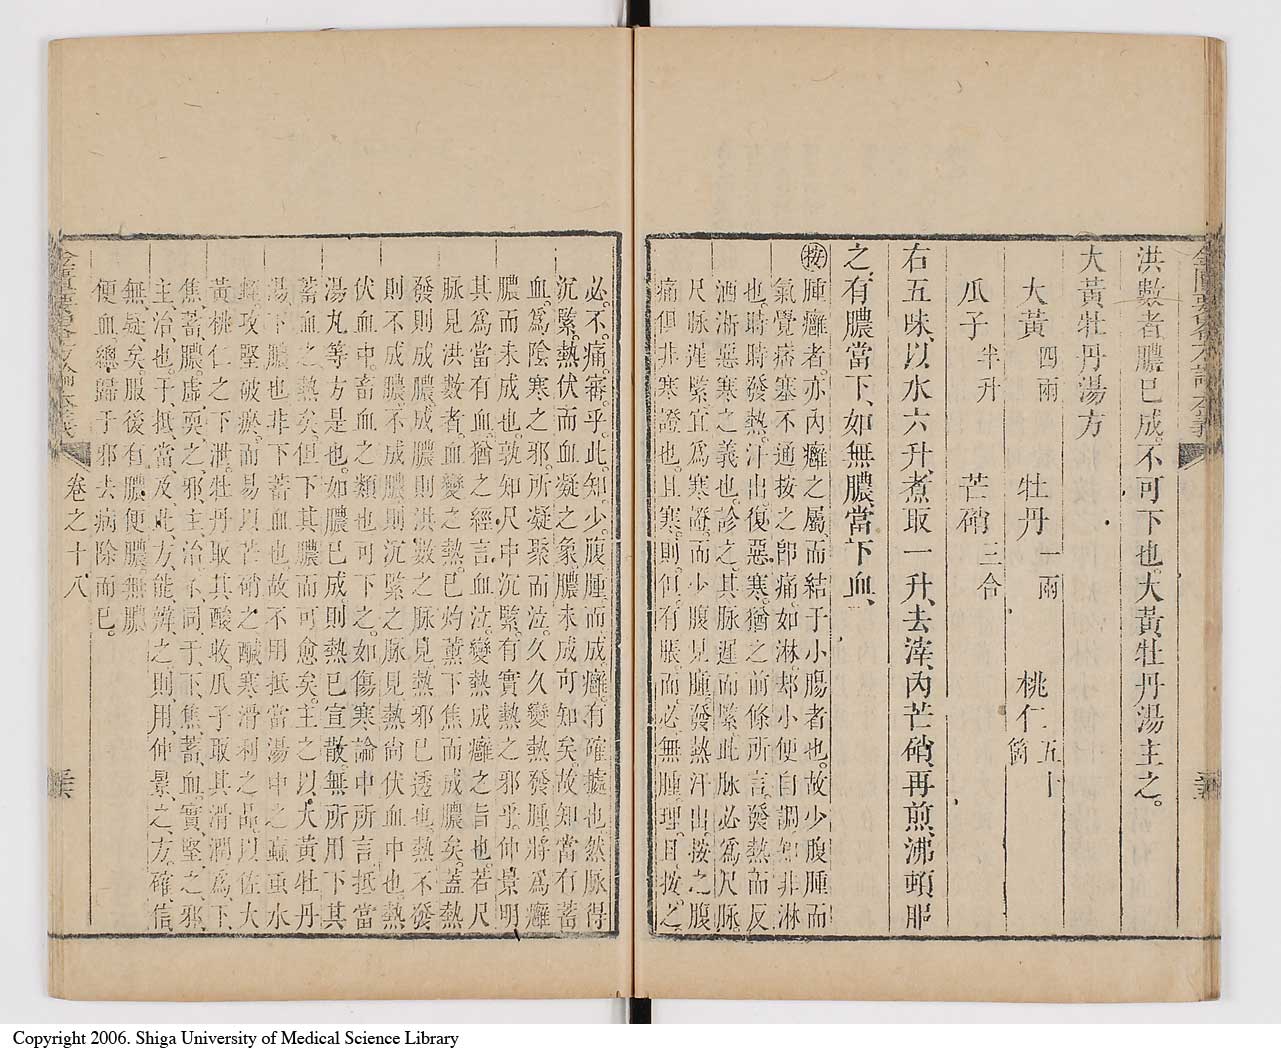 洪數者、膿已成、不可下也。大黃牡丹湯主之。
大黃牡丹湯方
大黃四兩 牡丹一兩 桃仁五十箇
瓜子半升 芒硝三合
右五味、以水六升、煮取一升、去滓、內芒硝、再煎沸、頓服
之、有膿當下、如無膿、當下血、
按腫癰者、亦內癰之屬、而結于小腸者也。故少腹腫而
氣覺痞塞不通、按之卽痛如淋、却小便自調、知非淋
也、時時發熱、汗出、復惡寒、猶之前條所言發熱而反
洒淅惡寒之義也。診之、其脉遲而緊、此脉必爲尺脉。
尺脉遲緊、宜爲寒證、而少腹見腫、發熱汗出、按之腹
痛、俱非寒證也。且寒、則但有脹、而必無腫理、且按之
必不痛、審乎此、知少腹腫而成癰、有確據也。然脉得
沉緊、熱伏而血凝之象、膿未成可知矣。故知當有蓄
血、爲陰寒之邪、所凝聚而泣、久久變熱發腫、將爲癰
膿而未成也。孰知尺中沉緊、有實熱之邪乎。仲景明
其爲當有血、猶之經言血泣變熱成癰之旨也。若尺
脉見洪數者、血變之熱、已灼薰下焦而成膿矣。蓋熱
發則成膿、成膿則洪數之脉見、熱邪已透也。熱不發
則不成膿、不成膿、則沉緊之脉見、熱尙伏血中也。熱
伏血中、畜血之類也、可下之、如傷寒論中所言抵當
湯丸等方是也。如膿已成、則熱已宣散、無所用下其
蓄血之熱矣。但下其膿、而可愈矣。主之以大黃牡丹
湯、下膿也、非下蓄血也、故不用抵當湯中之蝱䖟水
蛭、攻堅破瘀、而易以芒硝之鹹寒滑利之品、以佐大
黃桃仁之下泄、牡丹取其酸收、瓜子取其滑潤、爲下
焦蓄膿、虛耎之邪、主治、不同于下焦蓄血、實堅之邪、
主治也。于抵當及此方、能辨之、則用仲景之方、確信
無疑矣。服後有膿便膿、無膿
便血、總歸于邪去病除而已。
卷之十八
Copyright 2006. Shiga University of Medical Science Library